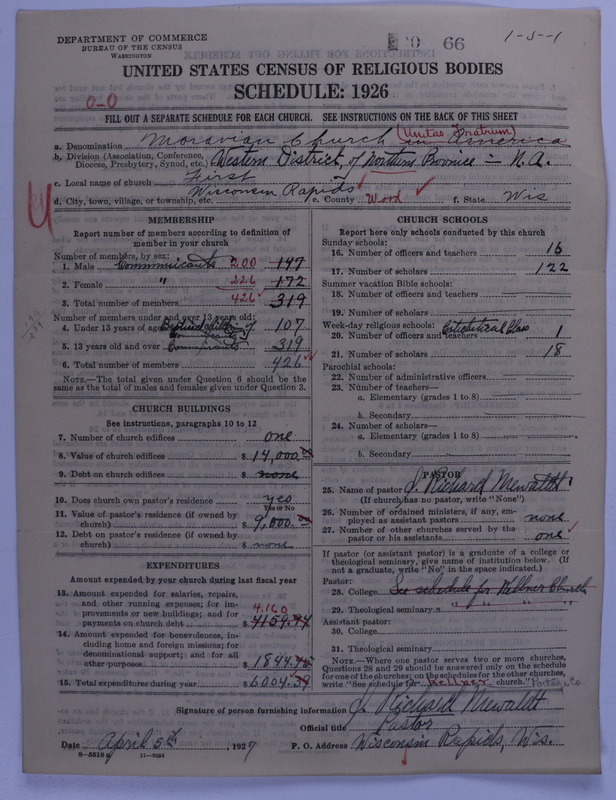 DEPARTMENT OF COMMERCE
BUREAU OF THE CENSUS
WASHINGTON
66
1-5-1
UNITED STATES CENSUS OF RELIGIOUS BODIES
SCHEDULE: 1926
0-0
FILL OUT A SEPARATE SCHEDULE FOR EACH CHURCH. SEE INSTRUCTIONS ON THE BACK OF THIS SHEET
(Unitas Fratrum)
a. Denomination Moravian Church in America
b. Division (Association, Conference, Diocese, Presbytery, Synod, etc.) Western District of Northern Province - N.A.
c. Local name of church First
d. City, town, village, or township, etc. Wisconsin Rapids e. County Wood f. State Wis
MEMBERSHIP
Report number of members according to definition of member in your church
Number of members, by sex:
1. Male Communicants 200 147
2. Female " 226 172
3. Total number of members 426 319
Number of members under and over 13 years old:
4. Under 13 years of age 107
5. 13 years old and over Communicants 319
6. Total number of members 426
NOTE.—The total given under Question 6 should be the same as the total of males and females given under Question 3.
CHURCH BUILDINGS
See instructions, paragraphs 10 to 12
7. Number of church edifices one
8. Value of church edifices $ 14,000.00
9. Debt on church edifices $ none
10. Does church own pastor's residence yes
Yes or No
11. Value of pastor's residence (if owned by church) $ 9,000.00
12. Debt on pastor's residence (if owned by church) $ none
EXPENDITURES
Amount expended by your church during last fiscal year
13. Amount expended for salaries, repairs, and other running expenses; for improvements or new buildings; and for payments on church debt 4,160 $ 4159.94
14. Amount expended for benevolences, including home and foreign missions; for denominational support; and for all other purposes $ 1844.45
15. Total expenditures during year $ 6004.39
CHURCH SCHOOLS
Report here only schools conducted by this church
Sunday schools:
16. Number of officers and teachers 16
17. Number of scholars 122
Summer vacation Bible schools:
18. Number of officers and teachers
19. Number of scholars
Week-day religious schools: Catechetical Class
20. Number of officers and teachers 1
21. Number of scholars 18
Parochial schools:
22. Number of administrative officers
23. Number of teachers—
a. Elementary (grades 1 to 8)
b. Secondary
24. Number of scholars—
a. Elementary (grades 1 to 8)
b. Secondary
PASTOR
25. Name of pastor J. Richard Mewaldt
(If church has no pastor, write "None")
26. Number of ordained ministers, if any, employed as assistant pastors none
27. Number of other churches served by the pastor or his assistants one
If pastor (or assistant pastor) is a graduate of a college or theological seminary, give name of institution below. (If not a graduate, write "No" in the space indicated.)
Pastor:
28. College See schedule for Kellner Church
29. Theological seminary " " " " "
Assistant pastor:
30. College
31. Theological seminary
NOTE.—Where one pastor serves two or more churches, Questions 28 and 29 should be answered only on the schedule for one of the churches; on the schedules for the other churches, write "See schedule for Kellner church." Portage Co
Signature of person furnishing information J. Richard Mewaldt
Official title Pastor
Date April 5th, 1927 P. O. Address Wisconsin Rapids, Wis.